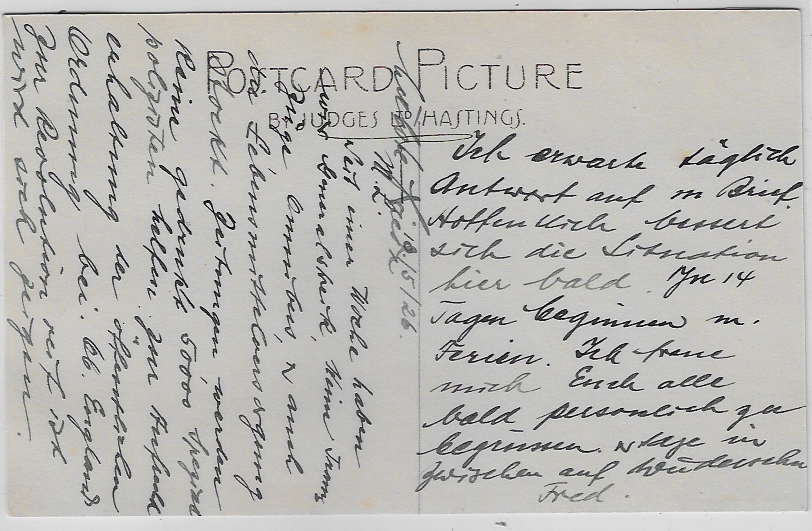 POSTCARD PICTURE
BY JUDGES LTD HASTINGS.
9/5/26.
M. L.
Seit einer Woche haben
wir Generalstreik, keine Trams
Züge Omnibus & auch
die Lebensmittelversorgung
stockt. Zeitungen werden
keine gedruckt 50000 Spezial
polizisten helfen zur Aufrecht
erhaltung der öffentlichen
Ordnung bei. Ob England
zur Revolution reif ist
wird sich zeigen.
Ich erwarte täglich
Antwort auf m Brief.
Hoffentlich bessert
sich die Situation
hier bald. In 14
Tagen beginnen m.
Ferien. Ich freue
mich Euch alle
bald persönlich zu
begrüssen. & sage in
zwischen auf Wiedersehn
Fred.